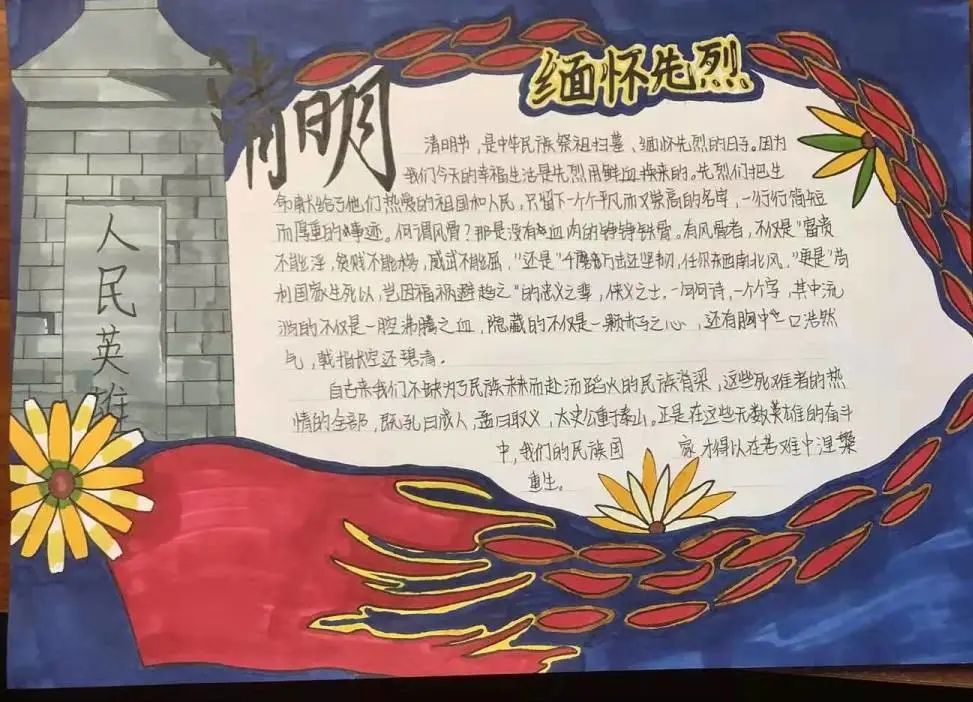 清明
缅怀先烈
人民英雄
清明节,是中华民族祭祖扫墓、缅怀先烈的日子。因为
我们今天的幸福生活是先烈用鲜血换来的。先烈们把生
命献给了他们热爱的祖国和人民,只留下一个个平凡而又崇高的名字,一行行简短
而厚重的事迹。何谓风骨?那是没有血肉的铮铮铁骨。有风骨者,不仅是"富贵
不能淫,贫贱不能移,威武不能屈,"还是"千磨万击还坚韧,任尔东西南北风,"更是"苟
利国家生死以,岂因福祸避趋之"的忠义之辈,侠义之士,一句句诗,一个个字,其中流
淌的不仅是一腔沸腾之血,隐藏的不仅是一颗赤子之心,还有胸中一口浩然
气,戟指长空还碧清.
自古来我们不缺为了民族未来而赴汤蹈火的民族脊梁,这些死难者的热
情的全部,既孔曰成人,孟曰取义,大丈心重于泰山。正是在这些无数英雄的奋斗
中,我们的民族国家才得以在苦难中涅槃
重生。